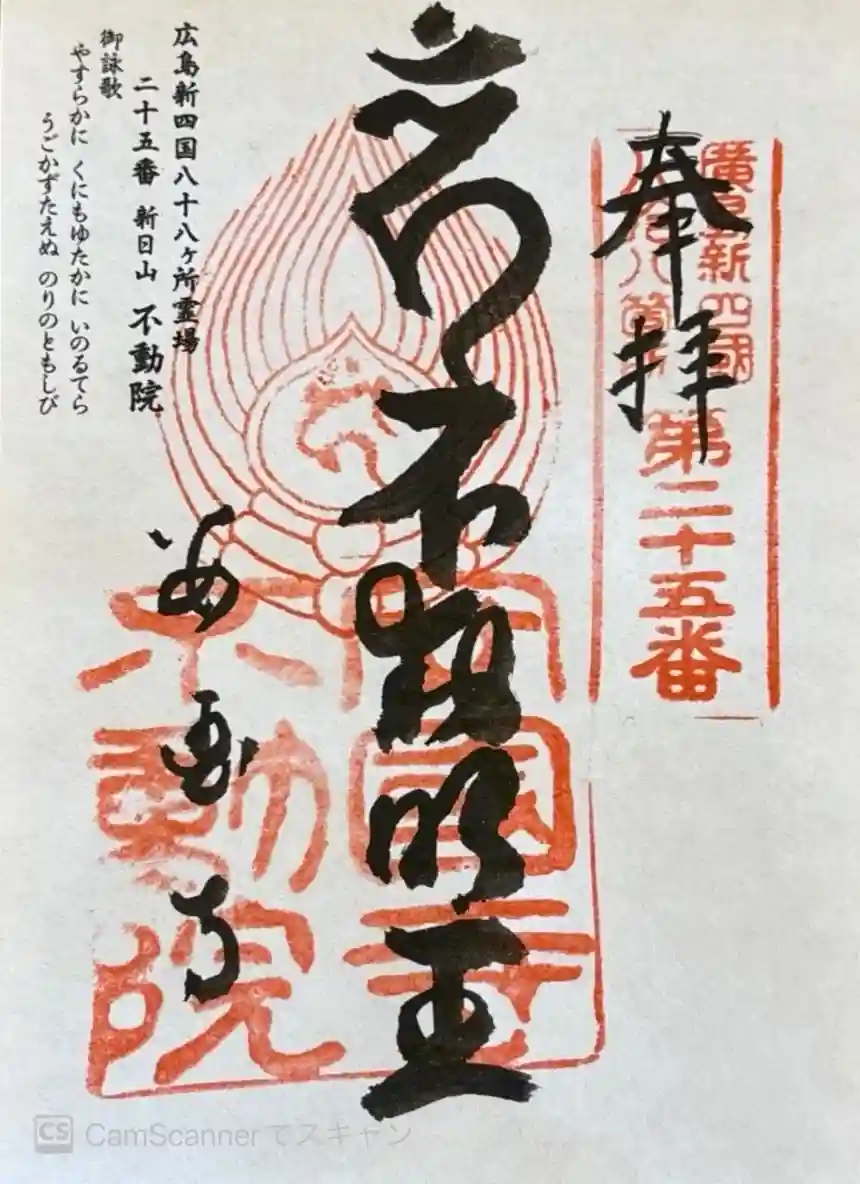 廣島新四國
第二十五番
奉拝
不動明王
安國寺
不動院
安国寺
広島新四国八十八ヶ所霊場
二十五番 新日山 不動院
御詠歌
やすらかに くにもゆたかに いのるてら
うごかずたえぬ のりのともしび
CS CamScannerでスキャン